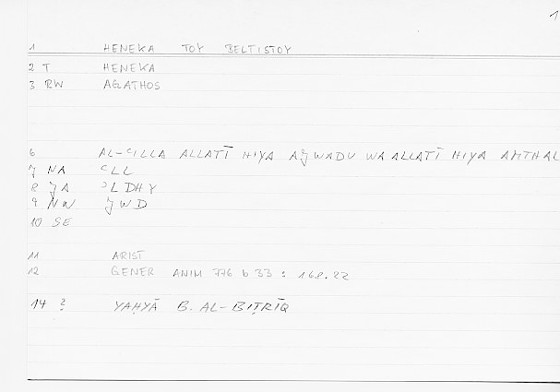 1
1 HENEKA TOY BELTISTOY
2 T HENEKA
3 RW AGATHOS
6 AL-ʿILLA ALLATĪ HIYA AǦWADU WA ALLATĪ HIYA AMTHAL
7 NA ʿLL
8 JA ʾLDHY
9 NW ǦWD
10 SE
11 ARIST
12 GENER ANIM 776 b 33 : 168.22
14 ? YAḤYĀ B. AL-BIṬRĪQ